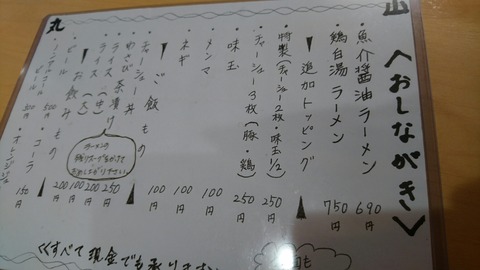 山
丸
〈おしながき〉
・魚介醤油ラーメン 690円
・鶏白湯ラーメン 750円
追加トッピング
・特製(チャーシュー2枚・味玉1/2) 250円
・チャーシュー3枚(豚・鶏) 250円
・味玉 100円
・メンマ 100円
・ネギ 100円
ご飯もの
・チャーシュー丼 250円
・わさび茶漬け 200円
・ライス 100円
・ライス 200円
ラーメンの
残りスープをかけて
お召し上がり下さい。
お飲みもの
・ビール 500円
・コーラ
・オレンジジュ 150円
《すべて現金でも承ります